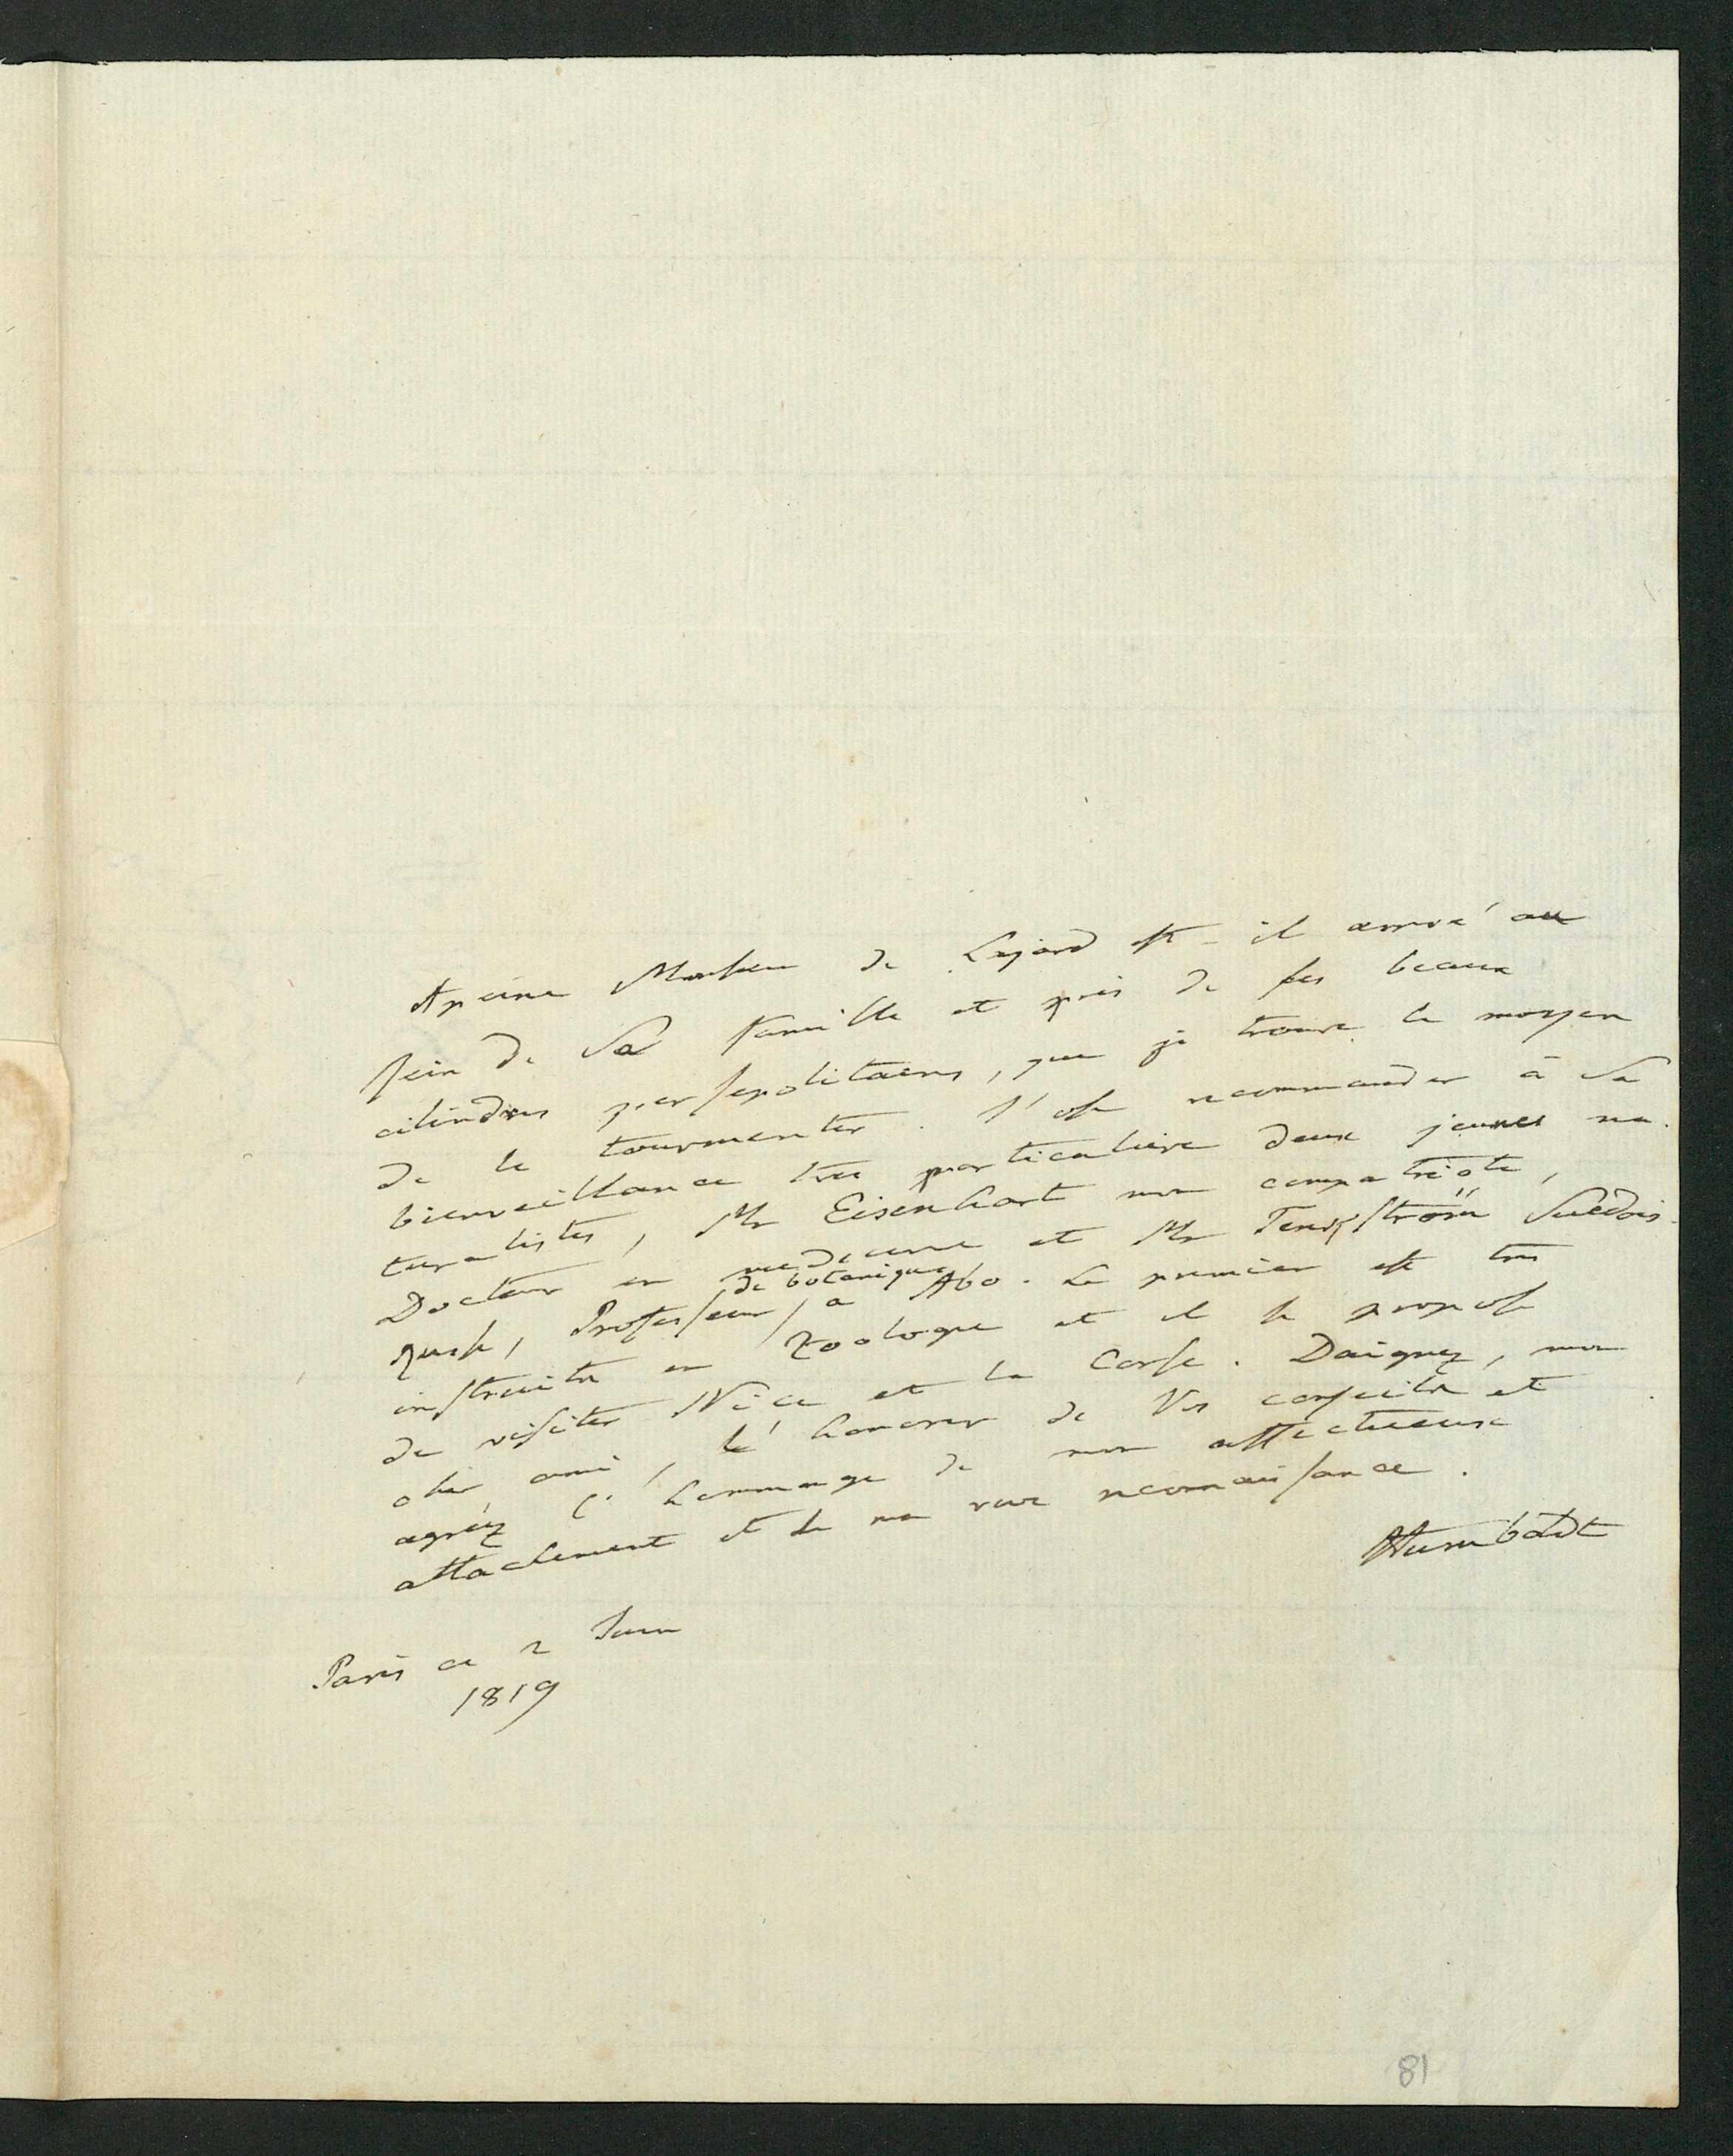 Apeine Monsieur de Lajard est-il arrivé au
sein de Sa famille et près de ses beaux
cilindres persepolitains, que je trouve le moyen
de le tourmenter. J'ose recommander à Sa
bienveillance tres particulière deux jeunes na-
turalistes, Mr Eisenhart mon compatriote,
Docteur en medecine et Mr Tengström Suèdois-
Russe, Professeur de botanique à Abo. Le premier est tres
instruite en Zoologie et il se propose
de visiter Nice et la Corse. Daignez, mon
cher ami, le honorer de Vos conseils et
agréez l'hommage de mon affectueux
attachement et de ma vive reconnaissance.
Humboldt
Paris ce 2 Juin
1819
81